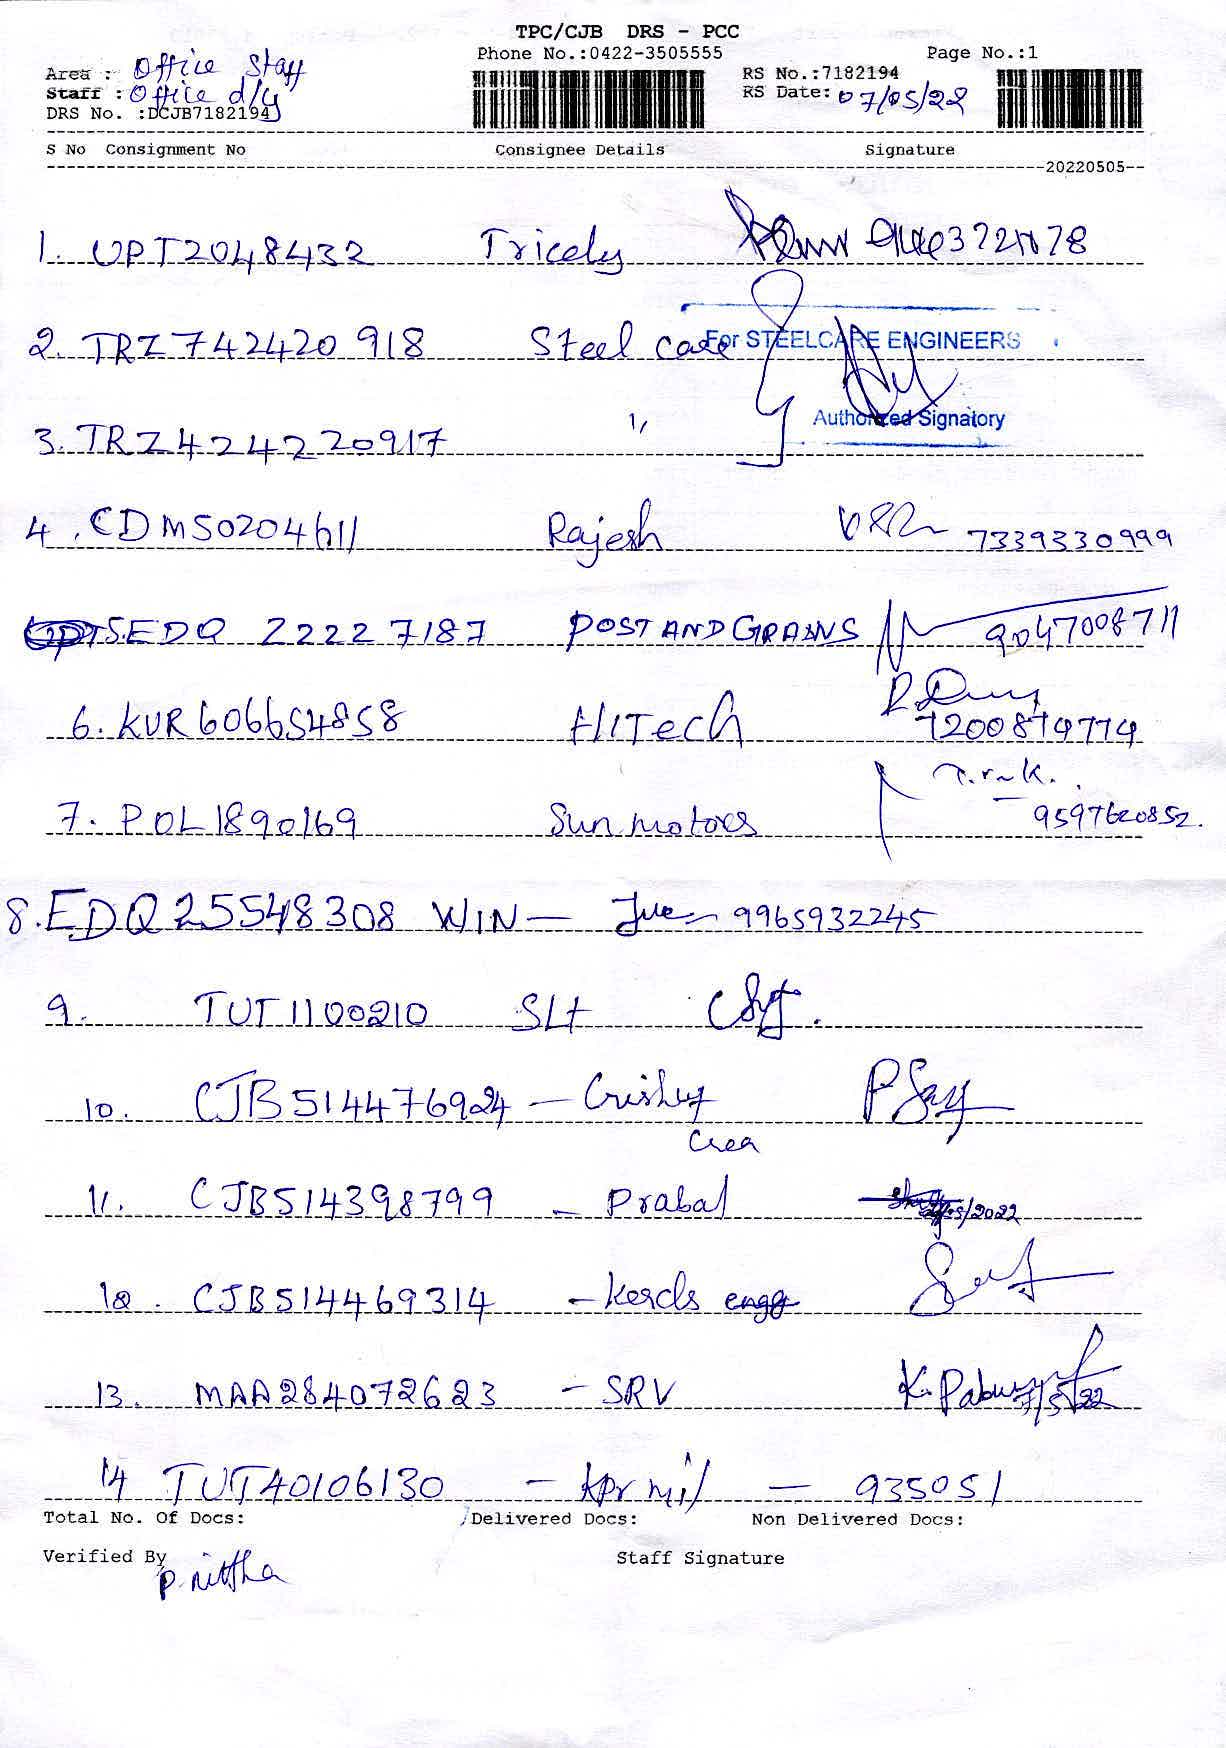 TPC/CJB DRS - PCC
Phone No.:0422-3505555 Page No.:1
Area : Office Staff
Staff : Office d/y
DRS No. :DCJB7182194
RS No.:7182194
RS Date: 07/05/22
S No Consignment No Consignee Details Signature
20220505
1. UPT2048432 Tricely
2. TRZ 742420 918 Steel care
For STEELCARE ENGINEERS
Authorized Signatory
3. TRZ 424220917 1,
4. CDM50204611 Rajesh 7339330999
5. EDQ 22227187 POST AND GRAINS 9047008711
6. KUR606654858 HITech 7200879779
7. POL1890169 Sun motors 9597620852.
8. EDQ25548308 WIN — 9965932245
9. TUT1100210 SLT
10. CJB514476924 —
Crea
11. CJB514398799 - Prabal /2022
12. CJB514469314 - engg
13. MAA284072623 - SRV K.
14 TUT40106130 - kpr mil — 935051
Total No. Of Docs: Delivered Docs: Non Delivered Docs:
Verified By Staff Signature